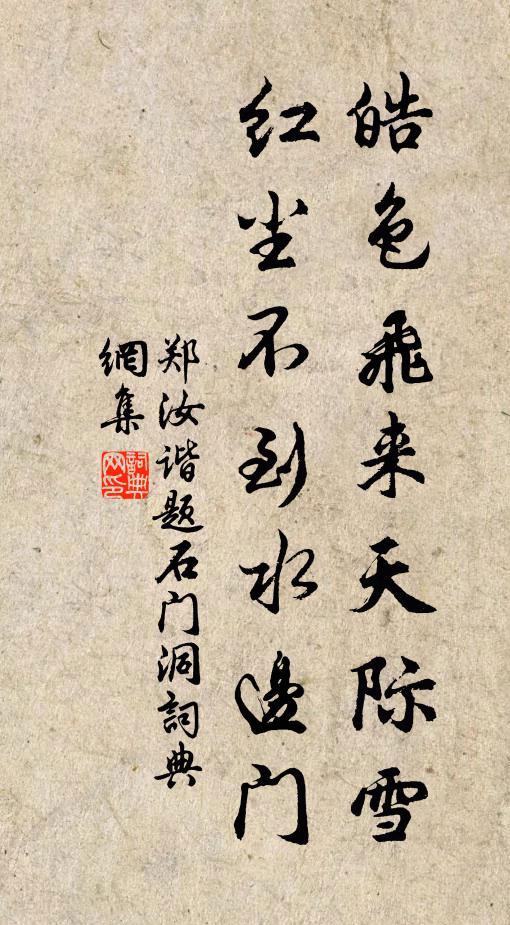 皓色飛来天际雪
红尘不到水邊门
郑汝谐题石门洞詞典
網集
詞典
网印